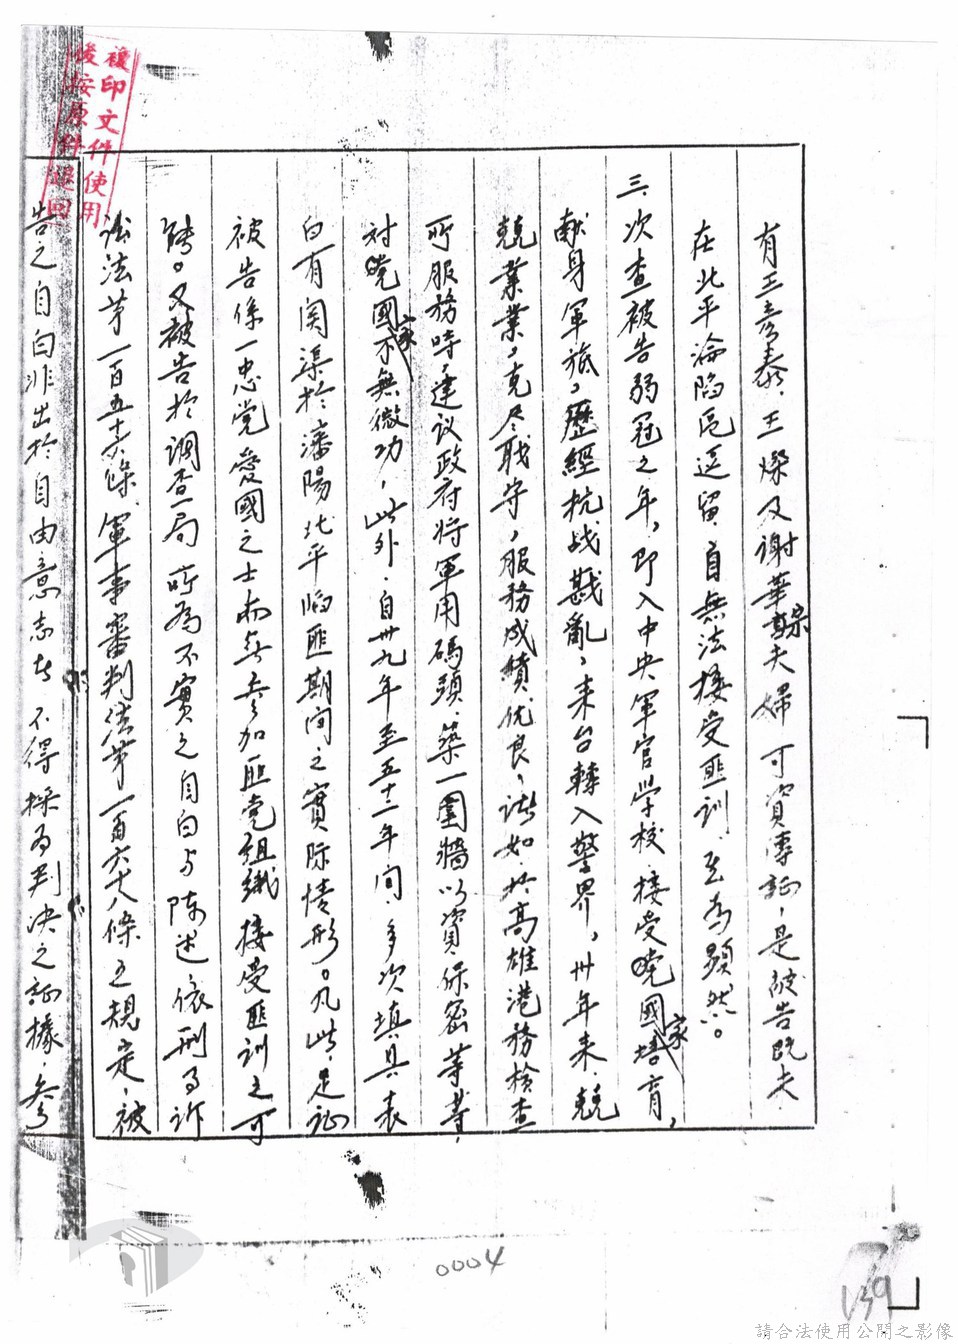 有王彥泰、王燦及謝華夫婦可資傳証,是被告既未
在北平淪陷區逗留,自無法接受匪訓,至為顯然。
三、次查被告弱冠之年,即入中央軍官學校,接受國家培育,
献身軍旅,歷經抗战戡亂,来台轉入警界,卅年来,兢
兢業業,克尽职守,服務成績优良,諸如於高雄港務檢查
所服務時,建议政府將軍用碼頭,築一圍牆以資保密等等,
对國家不無微功,此外,自卅九年至五十二年间,多次填具表
白有関渠於瀋陽北平陷匪期间之實际情形。凡此,足证
被告係一忠党愛國之士而無参加匪党組織接受匪訓之可
能。又被告於調查局所為不實之自白与陳述依刑事訴
訟法第一百五十六條、軍事審判法第一百六十八條之規定,被
告之自白非出於自由意志者,不得採為判决之証據,参
複印文件使用
後按原件退回
0004
139
請合法使用公開之影像